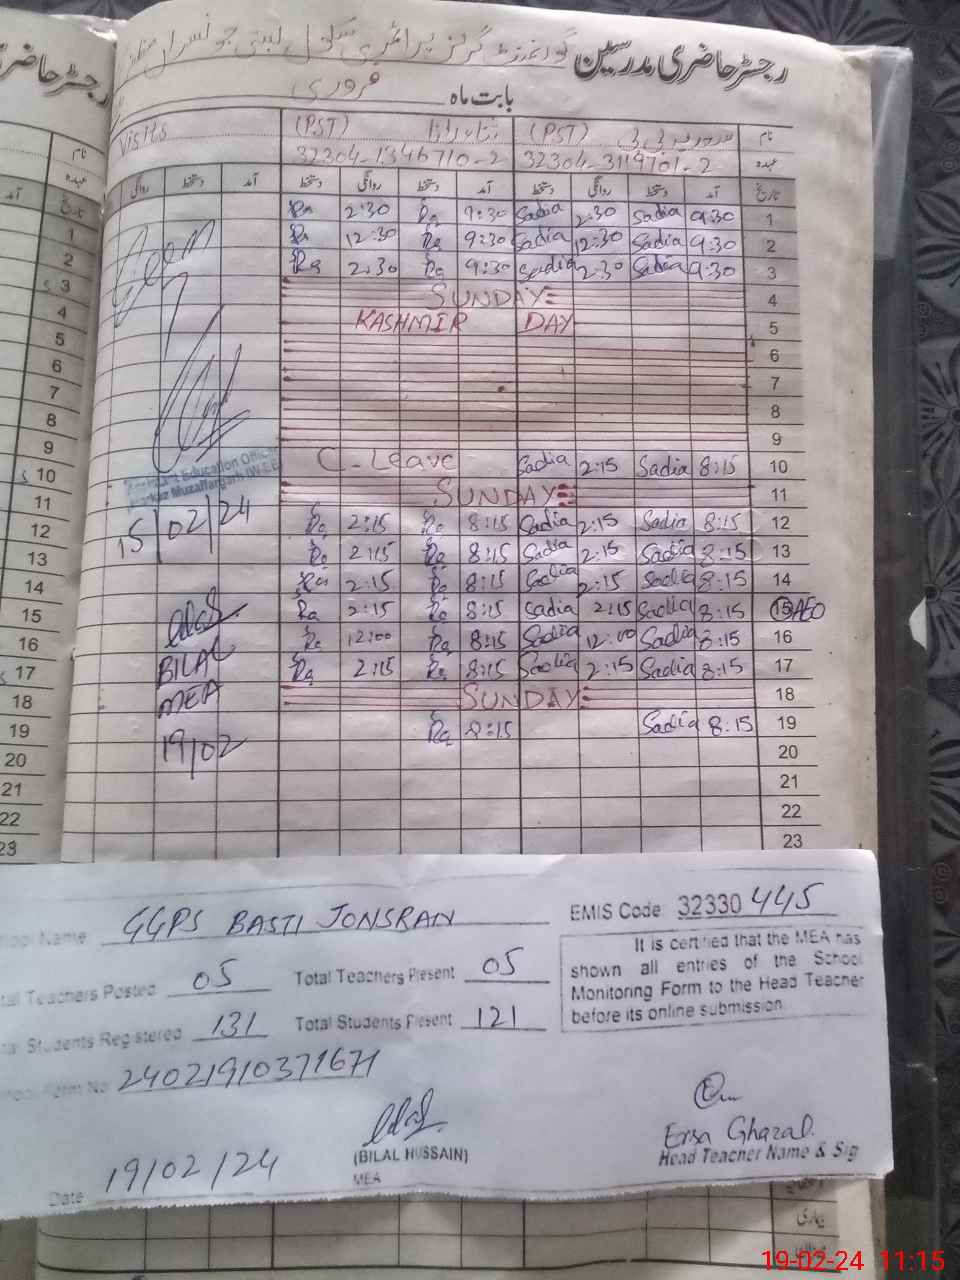 رجسٹر حاضری مدرسین گورنمنٹ گرلز پرائمری سکول بستی جونسران
بابت ماہ فروری
نام (PST) (PST) Visits
عہدہ 32304-3119701-2 32304-1346710-2
تاریخ آمد دستخط روانگی دستخط آمد دستخط روانگی دستخط آمد دستخط روانگی
Ra 2:30 Ra 9:30 Sadia 2:30 Sadia 9:30 1
Ra 12:30 Ra 9:30 Sadia 12:30 Sadia 9:30 2
Ra 2:30 Ra 9:30 Sadia 2:30 Sadia 9:30 3
SUNDAY 4
KASHMIR DAY 5
6
7
8
9
C-Leave Sadia 2:15 Sadia 8:15 10
SUNDAY 11
Ra 2:15 Ra 8:15 Sadia 2:15 Sadia 8:15 12
Ra 2:15 Ra 8:15 Sadia 2:15 Sadia 8:15 13
Ra 2:15 Ra 8:15 Sadia 2:15 Sadia 8:15 14
Ra 2:15 Ra 8:15 Sadia 2:15 Sadia 8:15 15 AEO
Ra 12:00 Ra 8:15 Sadia 12:00 Sadia 8:15 16
Ra 2:15 Ra 8:15 Sadia 2:15 Sadia 8:15 17
SUNDAY 18
Ra 8:15 Sadia 8:15 19
20
21
22
23
Assistant Education Officer
Markaz Muzaffargarh (W-EE)
15/02/24
BILAL
MEA
19/02
School Name GGPS BASTI JONSRAN EMIS Code 32330445
Total Teachers Posted 05 Total Teachers Present 05
Total Students Registered 131 Total Students Present 121
It is certified that the MEA has
shown all entries of the School
Monitoring Form to the Head Teacher
before its online submission.
School Form No 24021910371671
Date 19/02/24
(BILAL HUSSAIN)
MEA
Ersa Ghazal
Head Teacher Name & Sig
19-02-24 11:15